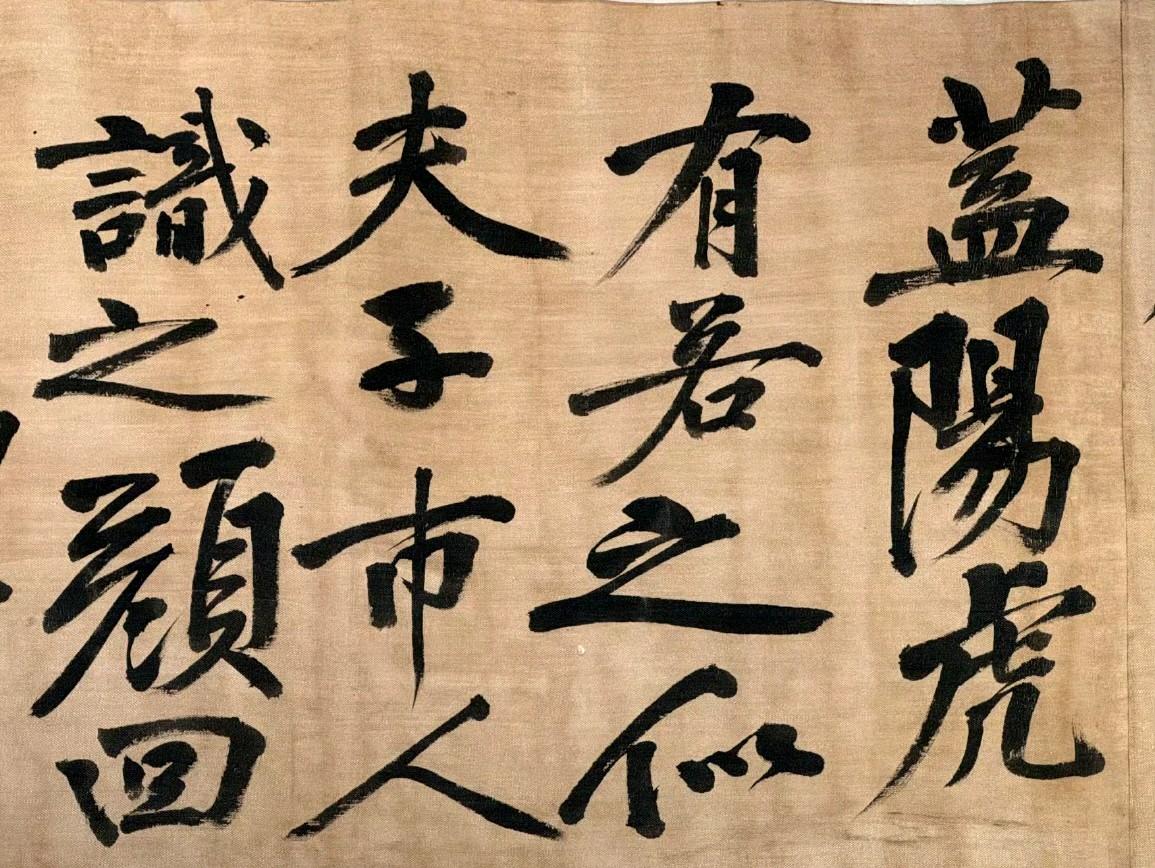 蓋陽虎
有若之似
夫子市人
識之顏回